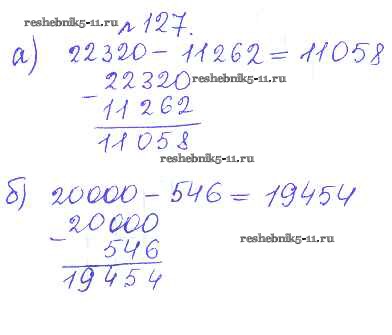 reshebnik5-11.ru
№127.
а) 22320 - 11262 = 11058
22320 reshebnik5-11.ru
- 11262
11058
reshebnik5-11.ru
б) 20000 - 546 = 19454
20000
- 546 reshebnik5-11.ru
19454